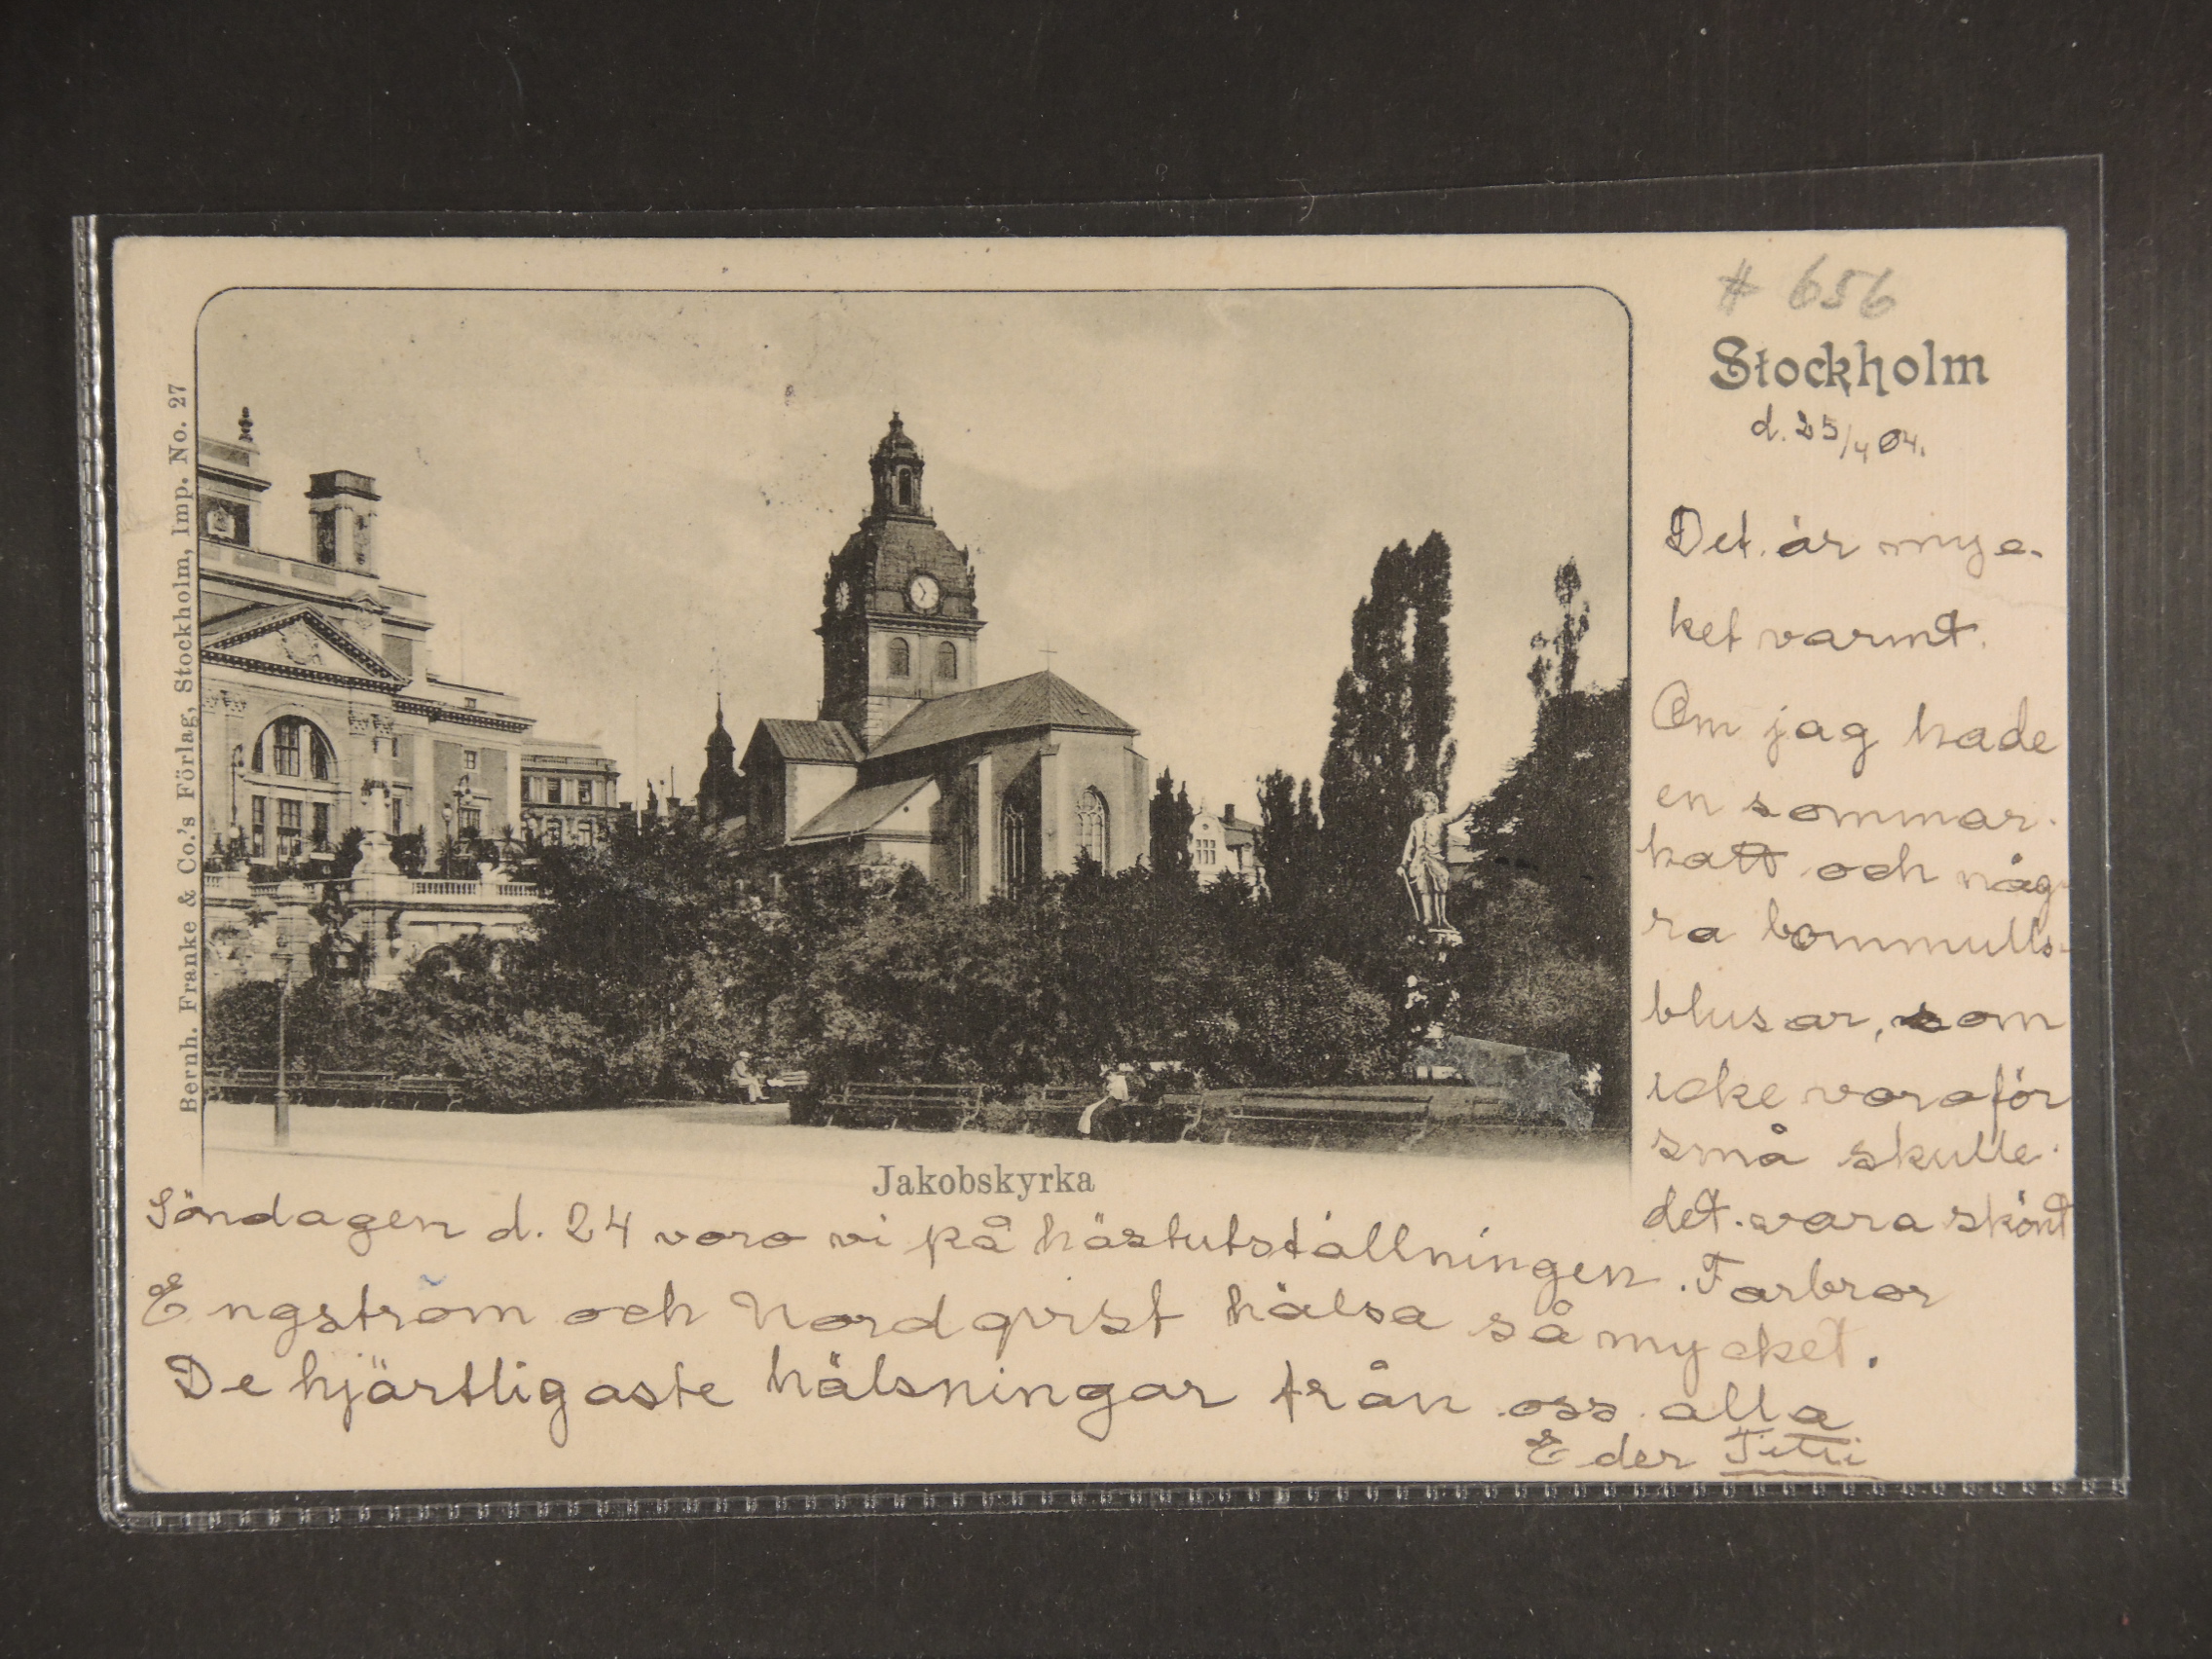 # 656
Stockholm
d. 25/4 04.
Det är myc-
ket varmt.
Om jag hade
en sommar-
hatt och någ-
ra bommulls-
blusar, som
icke voro för
små skulle
det vara skönt
Bernh. Franke & Co.'s Förlag, Stockholm, Imp. No. 27
Jakobskyrka
Söndagen d. 24 voro vi på hästutställningen. Farbror
Engström och Nordqvist hälsa så mycket.
De hjärtligaste hälsningar från oss alla
Eder Titti